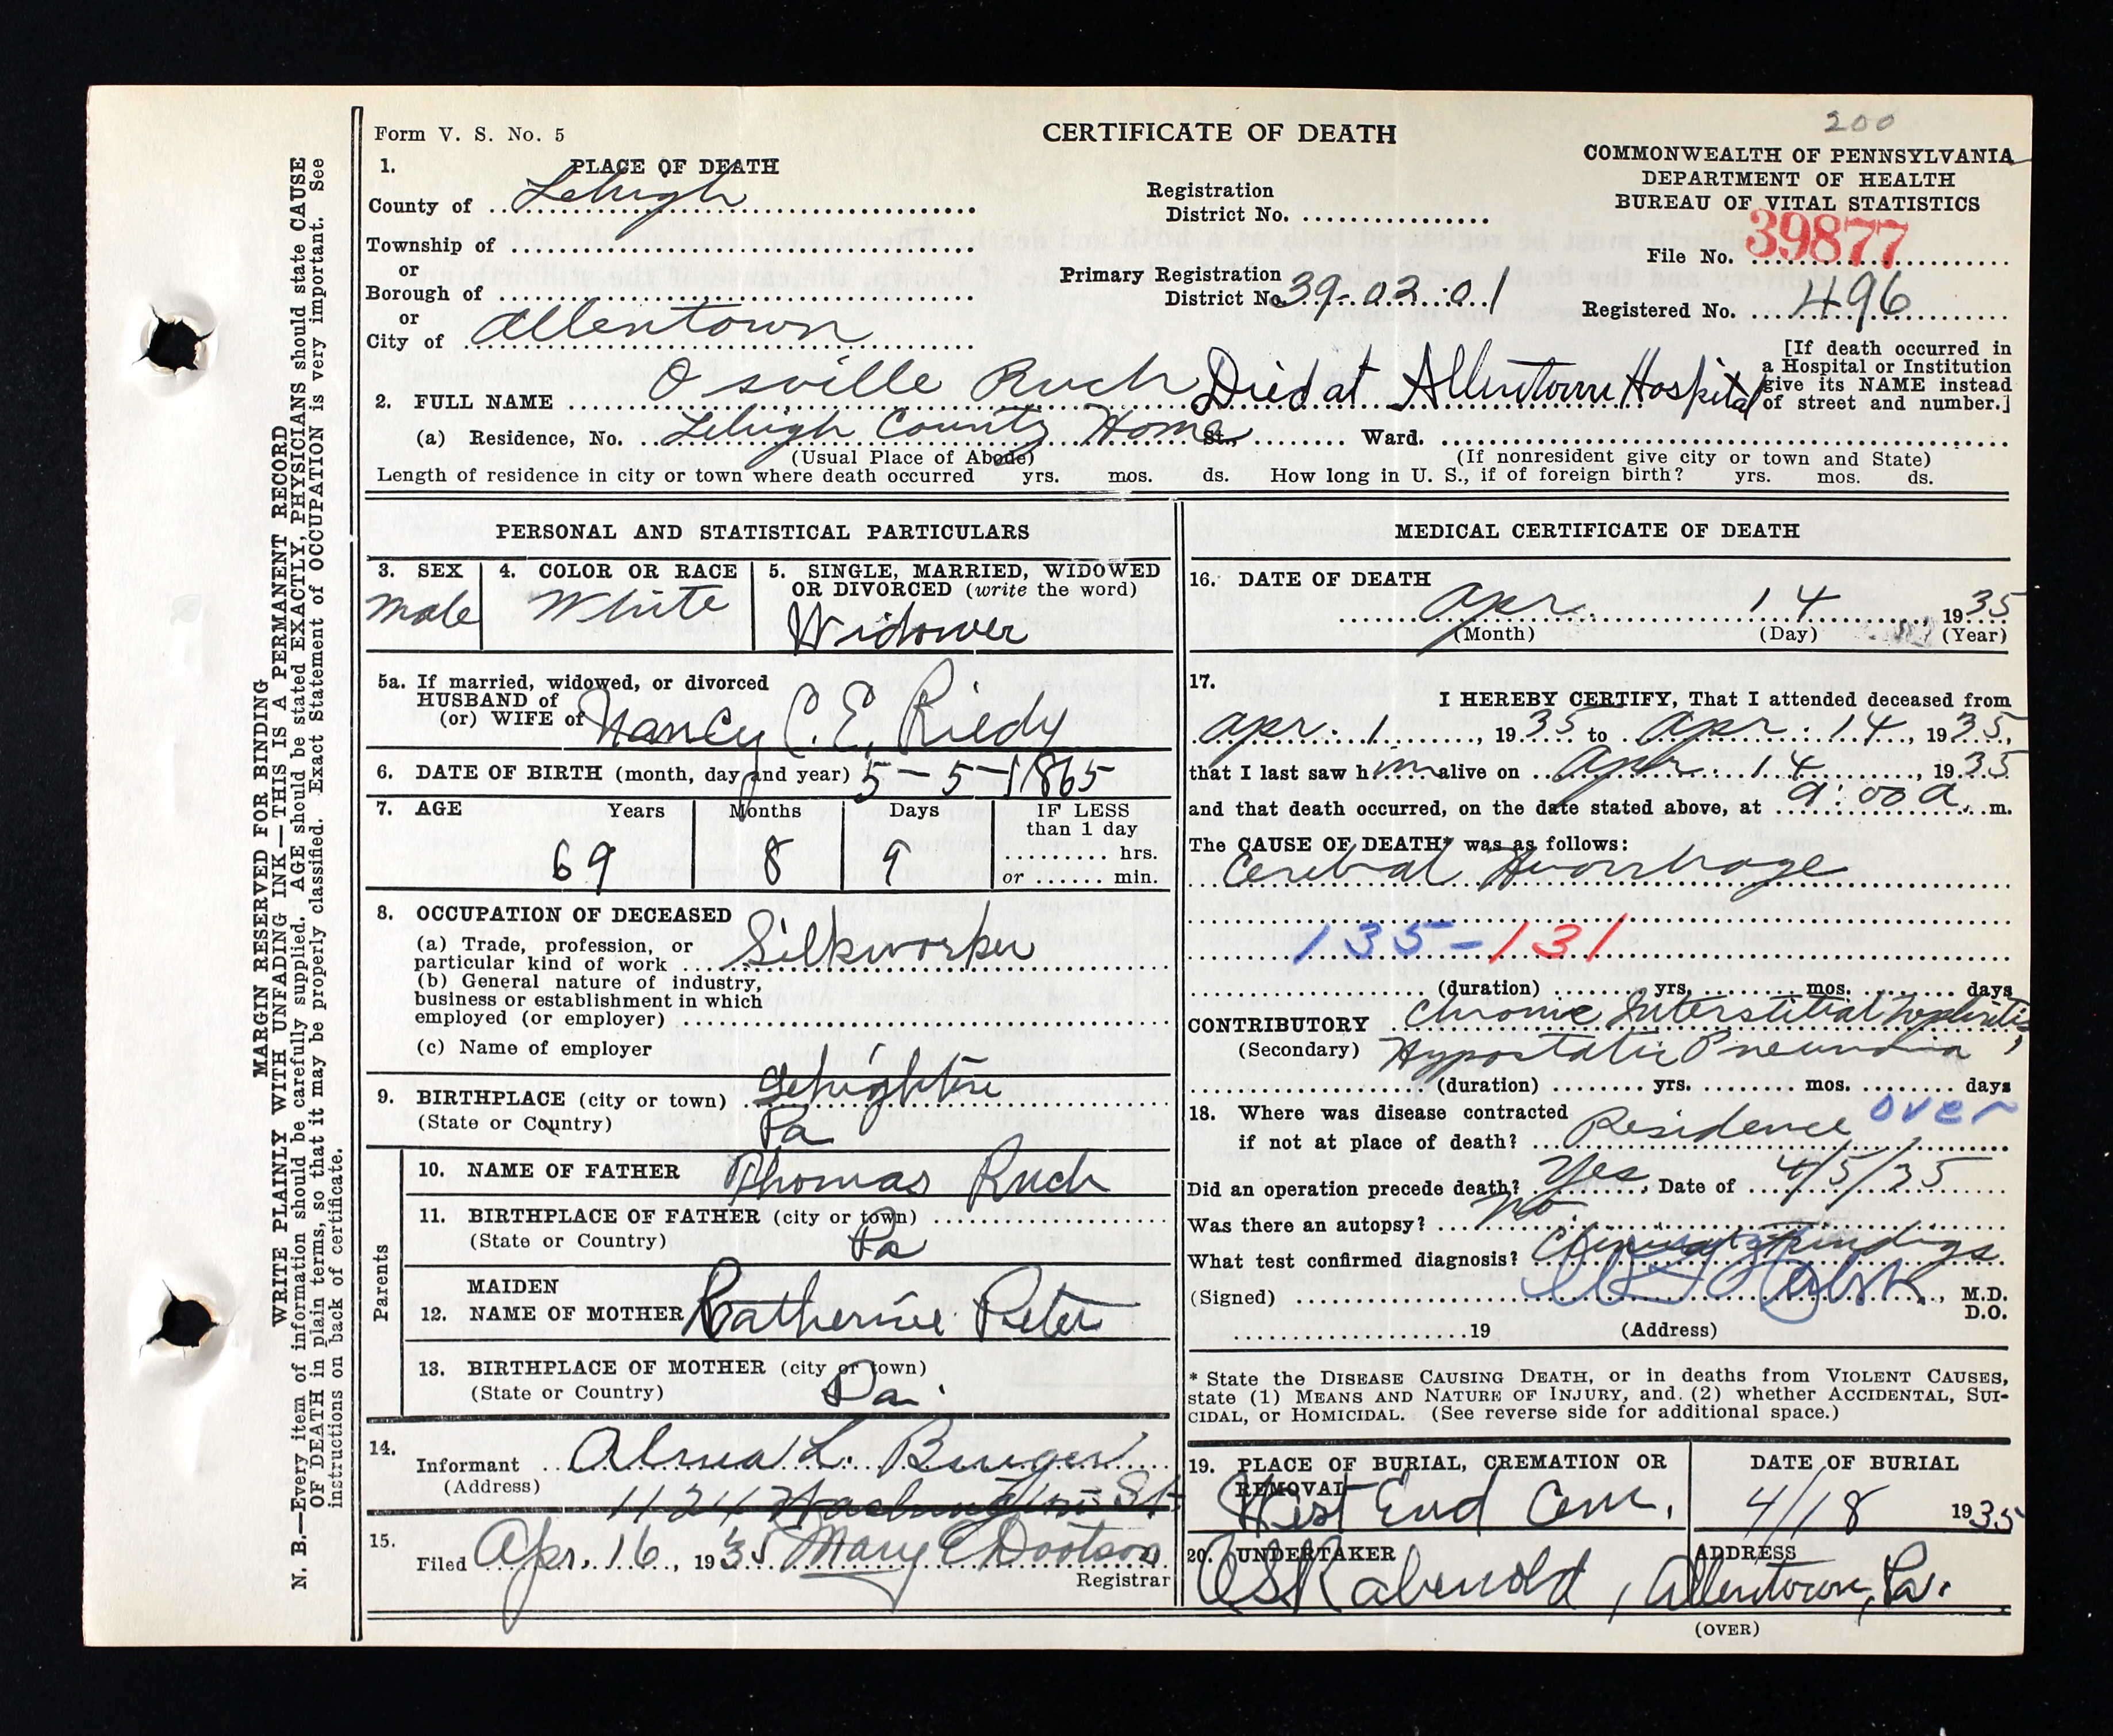 200
Form V. S. No. 5
CERTIFICATE OF DEATH
COMMONWEALTH OF PENNSYLVANIA
DEPARTMENT OF HEALTH
BUREAU OF VITAL STATISTICS
1. PLACE OF DEATH
County of Lehigh
Township of
or
Borough of
or
City of Allentown
Registration
District No.
Primary Registration
District No. 39-02-01
File No. 39877
Registered No. 496
2. FULL NAME Osville Ruch Died at Allentown Hospital
[If death occurred in
a Hospital or Institution
give its NAME instead
of street and number.]
(a) Residence, No. Lehigh County Home St., Ward.
(Usual Place of Abode) (If nonresident give city or town and State)
Length of residence in city or town where death occurred yrs. mos. ds. How long in U. S., if of foreign birth? yrs. mos. ds.
PERSONAL AND STATISTICAL PARTICULARS
3. SEX
Male
4. COLOR OR RACE
White
5. SINGLE, MARRIED, WIDOWED
OR DIVORCED (write the word)
Widower
5a. If married, widowed, or divorced
HUSBAND of
(or) WIFE of Nancy C. E. Riedy
6. DATE OF BIRTH (month, day and year) 5-5-1865
7. AGE Years Months Days IF LESS
than 1 day
69 8 9
hrs.
or min.
8. OCCUPATION OF DECEASED
(a) Trade, profession, or
particular kind of work Silkworker
(b) General nature of industry,
business or establishment in which
employed (or employer)
(c) Name of employer
9. BIRTHPLACE (city or town) Lehighton
(State or Country) Pa
Parents
10. NAME OF FATHER Thomas Ruch
11. BIRTHPLACE OF FATHER (city or town)
(State or Country) Pa
MAIDEN
12. NAME OF MOTHER Katherine Peter
13. BIRTHPLACE OF MOTHER (city or town)
(State or Country) Pa.
14.
Informant Alma L.
(Address) 1124 Washington St
15.
Filed Apr. 16, 1935 Mary E Dootson
Registrar
MEDICAL CERTIFICATE OF DEATH
16. DATE OF DEATH
Apr. 14 1935
(Month) (Day) (Year)
17.
I HEREBY CERTIFY, That I attended deceased from
Apr. 1, 1935 to Apr. 14, 1935,
that I last saw him alive on Apr. 14, 1935
and that death occurred, on the date stated above, at 9:00 a. m.
The CAUSE OF DEATH* was as follows:
Cerebral Hemorrhage
135-131
(duration) yrs. mos. days
CONTRIBUTORY Chronic Interstitial Nephritis,
(Secondary) Hypostatic Pneumonia
(duration) yrs. mos. days
over
18. Where was disease contracted
if not at place of death? Residence
Did an operation precede death? Yes, Date of 4/5/35
Was there an autopsy? No
What test confirmed diagnosis? Clinical Findings
(Signed) M.D.
D.O.
19 (Address)
* State the DISEASE CAUSING DEATH, or in deaths from VIOLENT CAUSES,
state (1) MEANS AND NATURE OF INJURY, and (2) whether ACCIDENTAL, SUI-
CIDAL, or HOMICIDAL. (See reverse side for additional space.)
19. PLACE OF BURIAL, CREMATION OR
REMOVAL
West End Cem.
DATE OF BURIAL
4/18 1935
20. UNDERTAKER ADDRESS
Rabenold, Allentown, Pa.
(OVER)
MARGIN RESERVED FOR BINDING
WRITE PLAINLY WITH UNFADING INK—THIS IS A PERMANENT RECORD
N. B.—Every item of information should be carefully supplied. AGE should be stated EXACTLY, PHYSICIANS should state CAUSE
OF DEATH in plain terms, so that it may be properly classified. Exact Statement of OCCUPATION is very important. See
instructions on back of certificate.